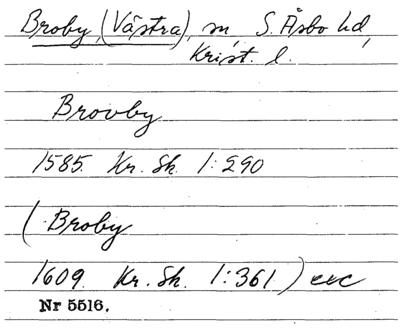 Broby, (Västra), sn, S. Åsbo hd,
Krist. l.
Brovby
1585. Kr. Sk. 1:290
(Broby
1609. Kr. Sk. 1:361) etc
Nr 5516.